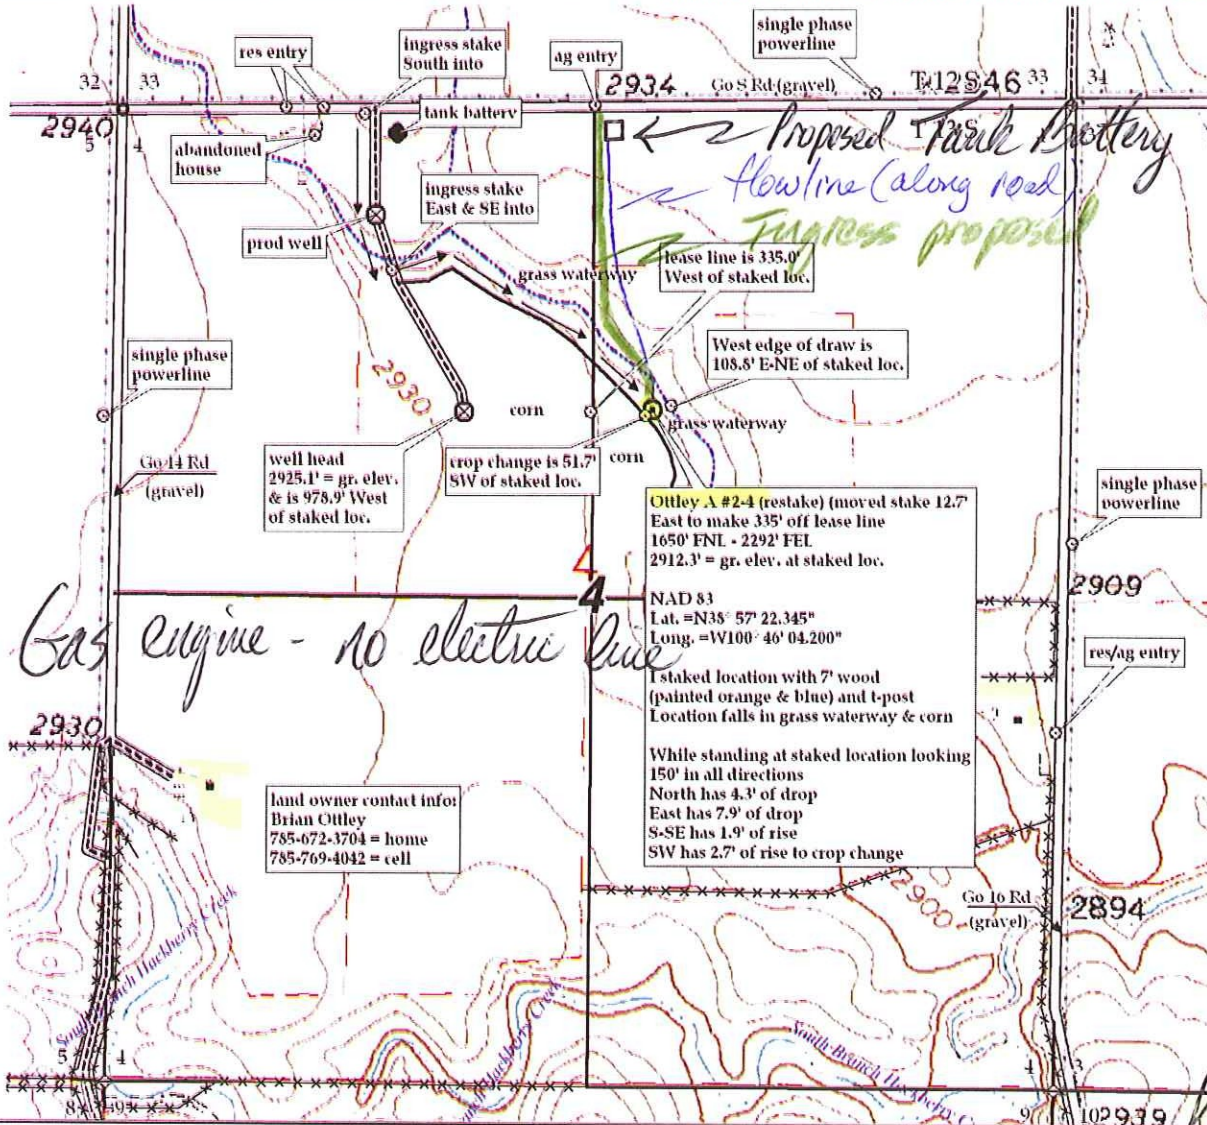 single phase
powerline
ingress stake
South into
res entry
ag entry
32 33
2934
Go S Rd (gravel)
33 34
2940
5 4
tank battery
Proposed Tank Battery
abandoned
house
flowline (along road)
ingress stake
East & SE into
Ingress proposed
prod well
lease line is 335.0'
West of staked loc.
grass waterway
West edge of draw is
108.8' E-NE of staked loc.
single phase
powerline
2930
corn
grass waterway
Go 14 Rd
(gravel)
well head
2925.1' = gr. elev.
& is 978.9' West
of staked loc.
crop change is 51.7'
SW of staked loc.
corn
single phase
powerline
Ottley A #2-4 (restake) (moved stake 12.7'
East to make 335' off lease line
1650' FNL - 2292' FEL
2912.3' = gr. elev. at staked loc.
NAD 83
Lat. =N38° 57' 22.345"
Long. =W100° 46' 04.200"
I staked location with 7' wood
(painted orange & blue) and t-post
Location falls in grass waterway & corn
While standing at staked location looking
150' in all directions
North has 4.3' of drop
East has 7.9' of drop
S-SE has 1.9' of rise
SW has 2.7' of rise to crop change
4
4
2909
Gas engine - no electric line
res/ag entry
2930
land owner contact info:
Brian Ottley
785-672-3704 = home
785-769-4042 = cell
2900
Go 16 Rd
(gravel)
2894
Hackberry Creek
Hackberry Creek
South Branch Hackberry C
5 4
4 3
8 9
9 10
2939